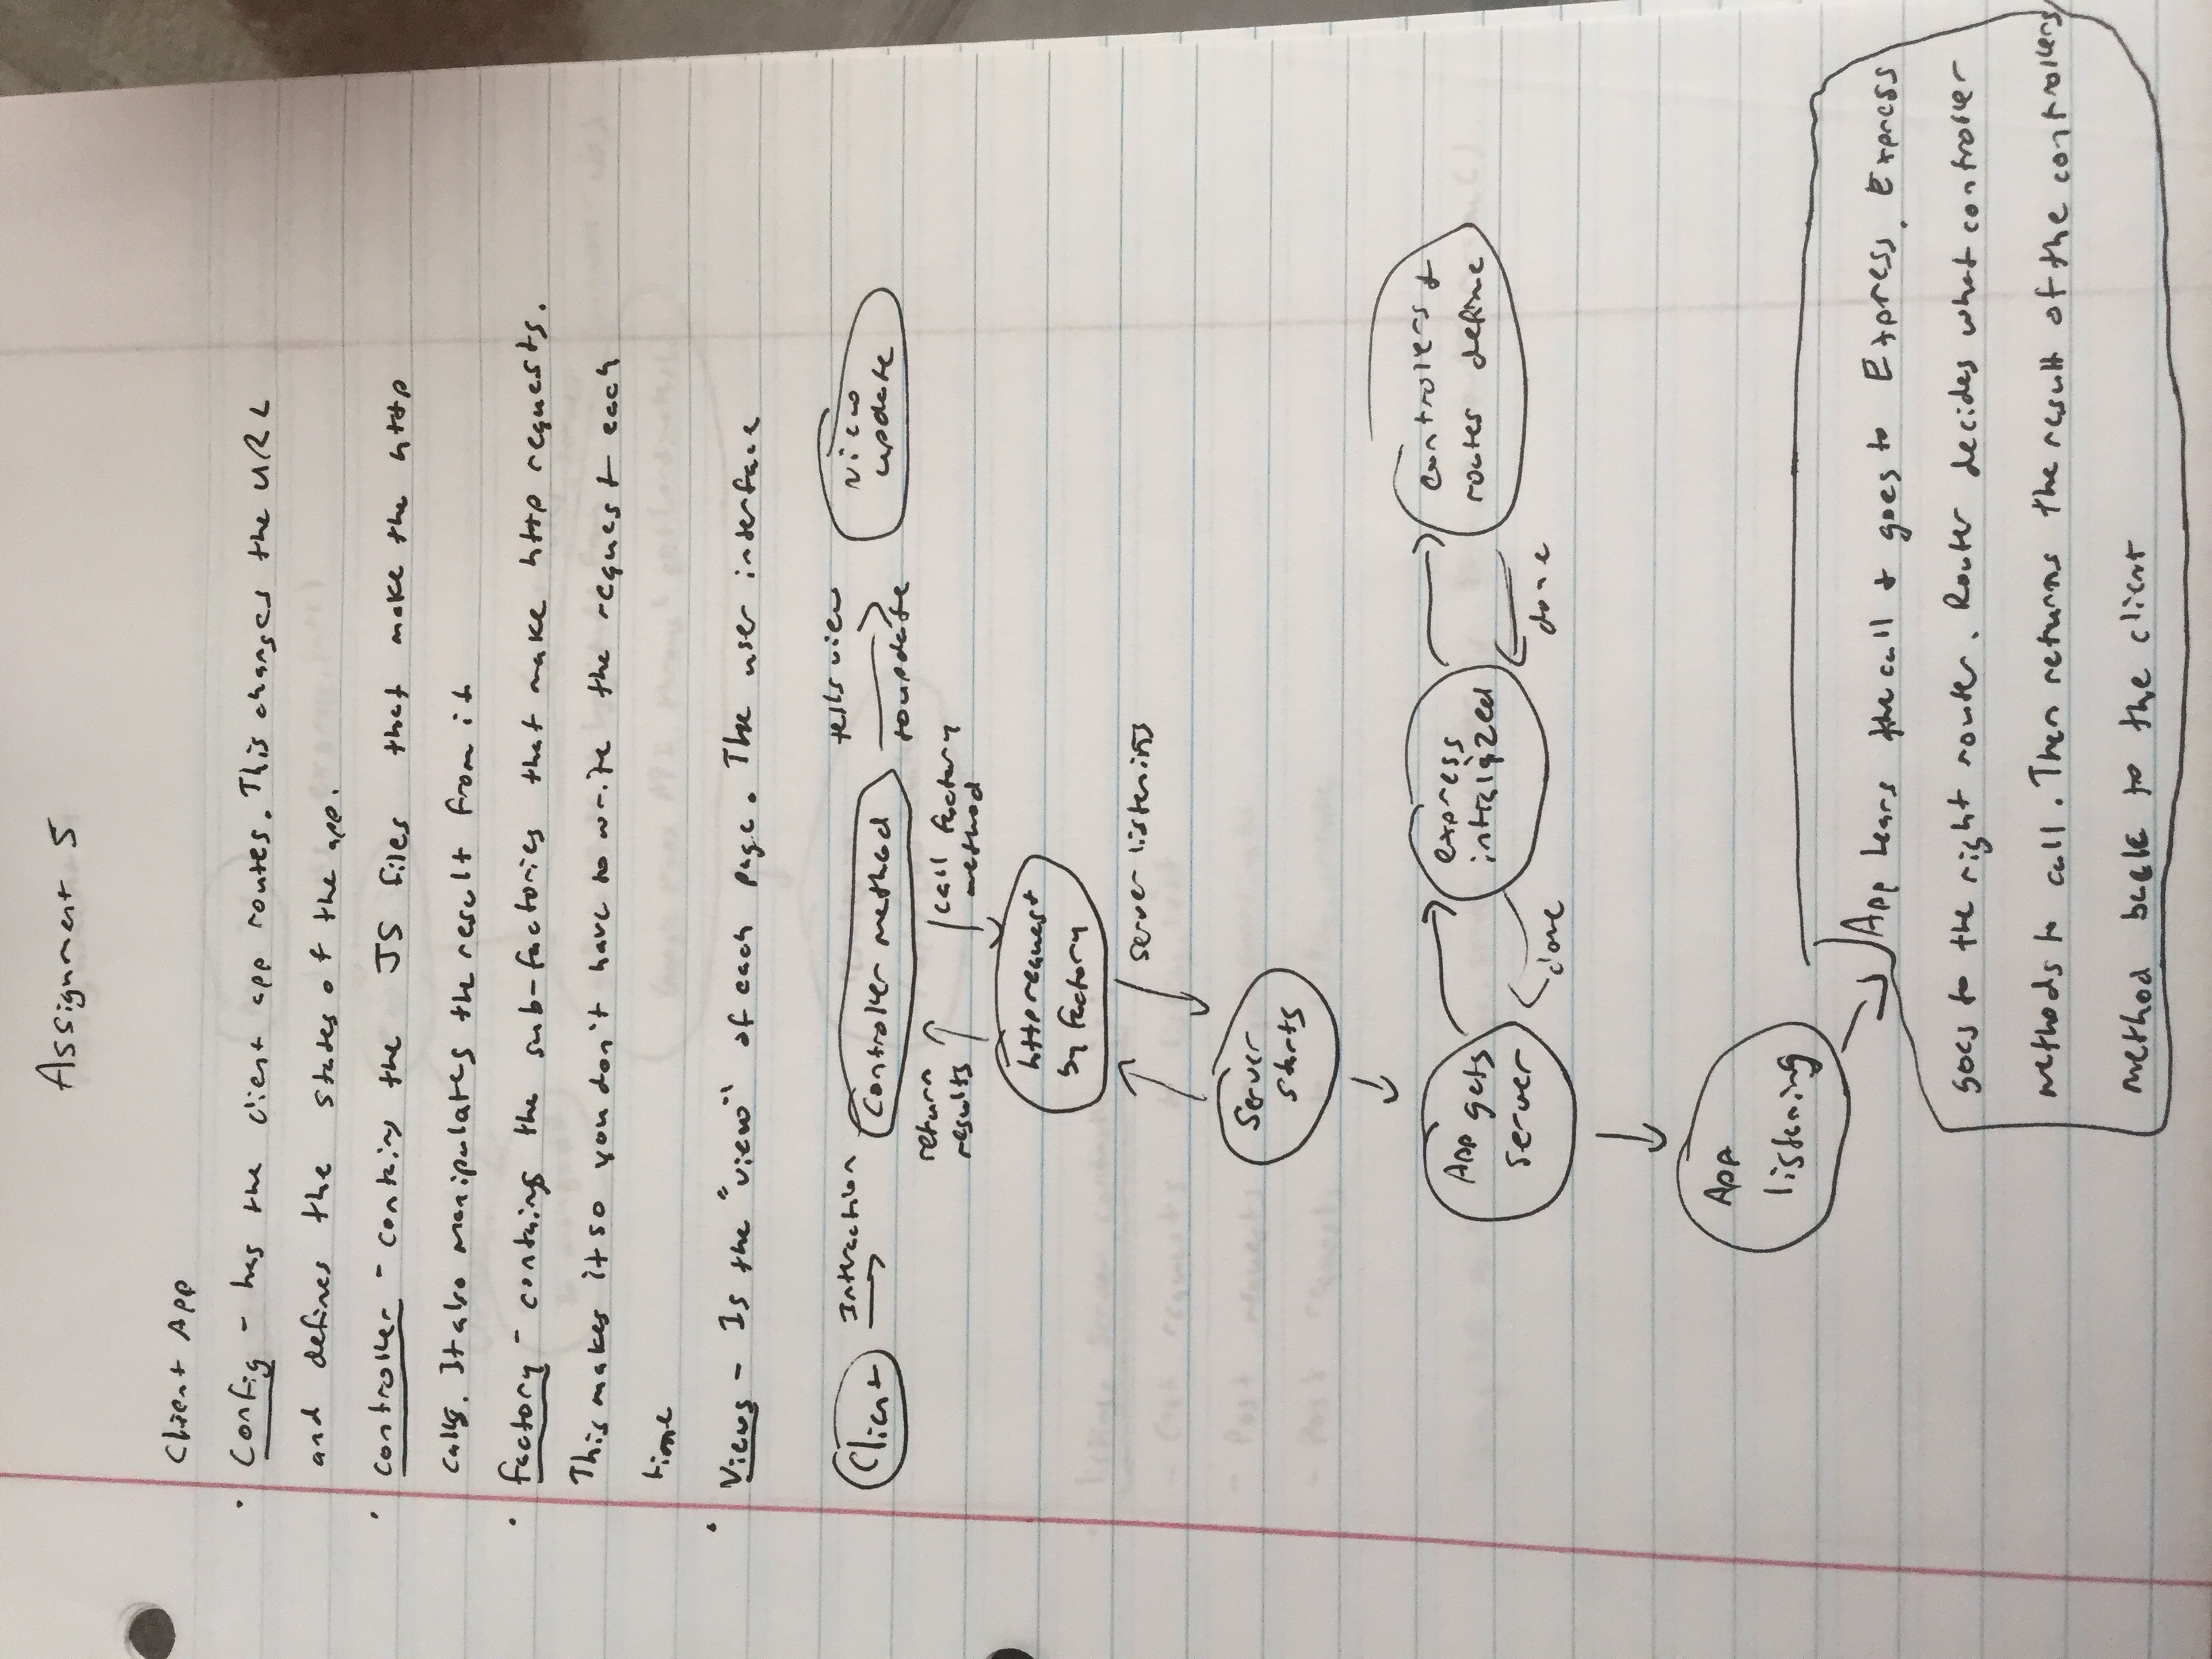 Assignment 5
Client App
· Config - has the client app routes. This changes the URL
and defines the states of the app.
· controller - contains the JS files that make the http
calls. It also manipulates the result from it
· factory - contains the sub-factories that make http requests.
This makes it so you don't have to write the request each
time
· Views - Is the "view" of each page. The user interface
Client
Interaction
Controller method
tells view
to update
view
update
return
results
call factory
method
http request
by factory
server listening
Server
starts
App gets
server
express
initialized
controllers &
routes define
done
done
App
listening
App hears the call & goes to Express. Express
goes to the right router. Router decides what controller
methods to call. Then returns the result of the controllers
method back to the client